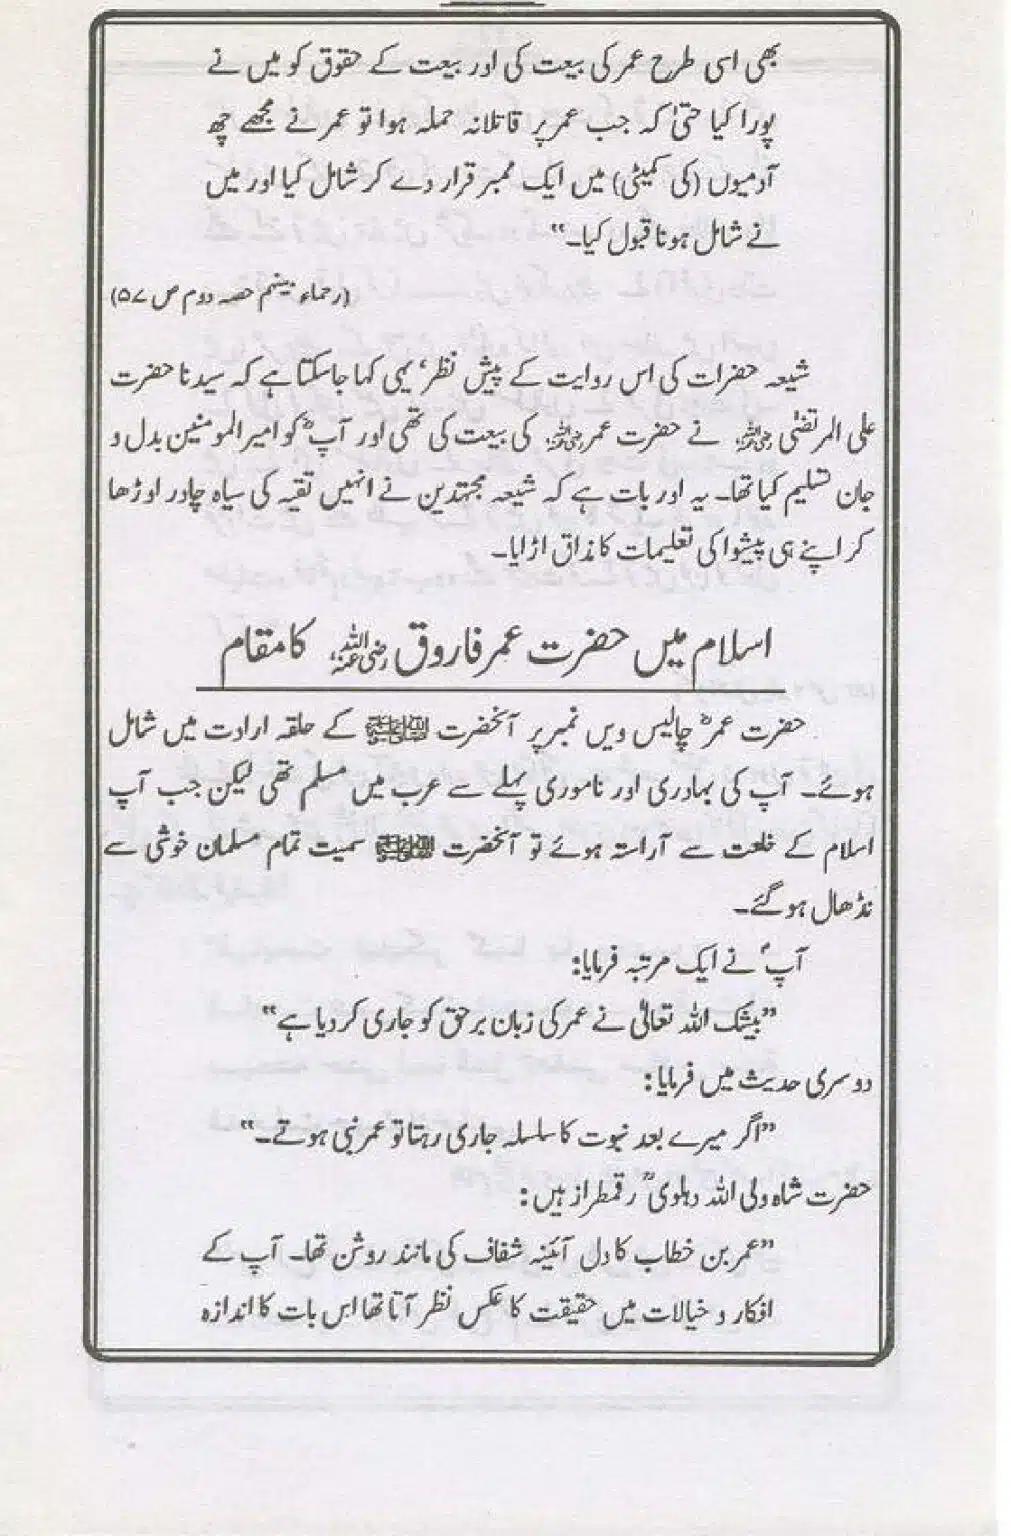 بھی اسی طرح عمر کی بیعت کی اور بیعت کے حقوق کو میں نے
پورا کیا حتیٰ کہ جب عمر پر قاتلانہ حملہ ہوا تو عمر نے مجھے چھ
آدمیوں (کی کمیٹی) میں ایک ممبر قرار دے کر شامل کیا اور میں
نے شامل ہونا قبول کیا۔“
(رحماء بینھم حصہ دوم ص ۵۷)
شیعہ حضرات کی اس روایت کے پیش نظر‘ یہی کہا جا سکتا ہے کہ سیدنا حضرت
علی المرتضیٰ رضی اللہ عنہ نے حضرت عمر رضی اللہ عنہ کی بیعت کی تھی اور آپؓ کو امیر المومنین بدل و
جان تسلیم کیا تھا۔ یہ اور بات ہے کہ شیعہ مجتہدین نے انہیں تقیہ کی سیاہ چادر اوڑھا
کر اپنے ہی پیشوا کی تعلیمات کا مذاق اڑایا۔
اسلام میں حضرت عمر فاروق رضی اللہ عنہ کا مقام
حضرت عمرؓ چالیس ویں نمبر پر آنحضرت ﷺ کے حلقہ ارادت میں شامل
ہوئے۔ آپ کی بہادری اور ناموری پہلے سے عرب میں مسلم تھی لیکن جب آپ
اسلام کے خلعت سے آراستہ ہوئے تو آنحضرت ﷺ سمیت تمام مسلمان خوشی سے
نڈھال ہو گئے۔
آپؐ نے ایک مرتبہ فرمایا:
”بیشک اللہ تعالیٰ نے عمر کی زبان پر حق کو جاری کر دیا ہے“
دوسری حدیث میں فرمایا:
”اگر میرے بعد نبوت کا سلسلہ جاری رہتا تو عمر نبی ہوتے۔“
حضرت شاہ ولی اللہ دہلویؒ رقمطراز ہیں:
”عمر بن خطاب کا دل آئینہ شفاف کی مانند روشن تھا۔ آپ کے
افکار و خیالات میں حقیقت کا عکس نظر آتا تھا اس بات کا اندازہ